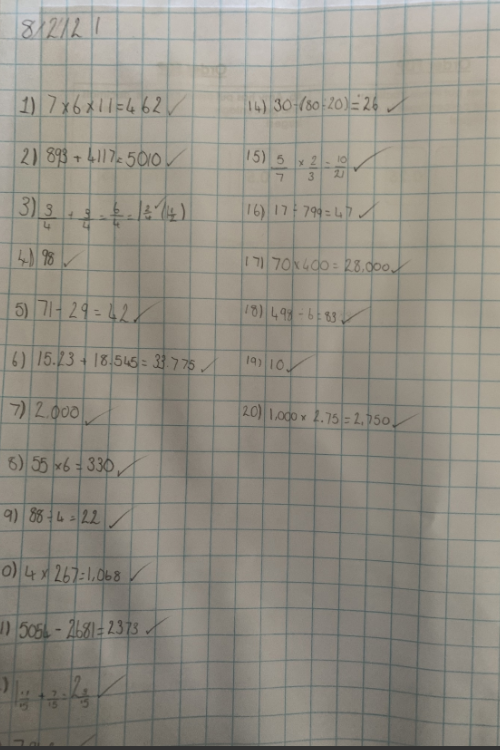 8/2/21
1) 7 × 6 × 11 = 462 ✓
2) 893 + 4117 = 5010 ✓
3) 3/4 + 3/4 = 6/4 = 1 2/4 ✓ (1 1/2)
4) 98 ✓
5) 71 - 29 = 42 ✓
6) 15.23 + 18.545 = 33.775 ✓
7) 2.000 ✓
8) 55 × 6 = 330 ✓
9) 88 ÷ 4 = 22 ✓
0) 4 × 267 = 1,068 ✓
1) 5054 - 2681 = 2373 ✓
14) 30 - (80 ÷ 20) = 26 ✓
15) 5/7 × 2/3 = 10/21 ✓
16) 17 ÷ 799 = 47 ✓
17) 70 × 400 = 28.000 ✓
18) 498 ÷ 6 = 83 ✓
19) 10 ✓
20) 1.000 × 2.75 = 2,750 ✓